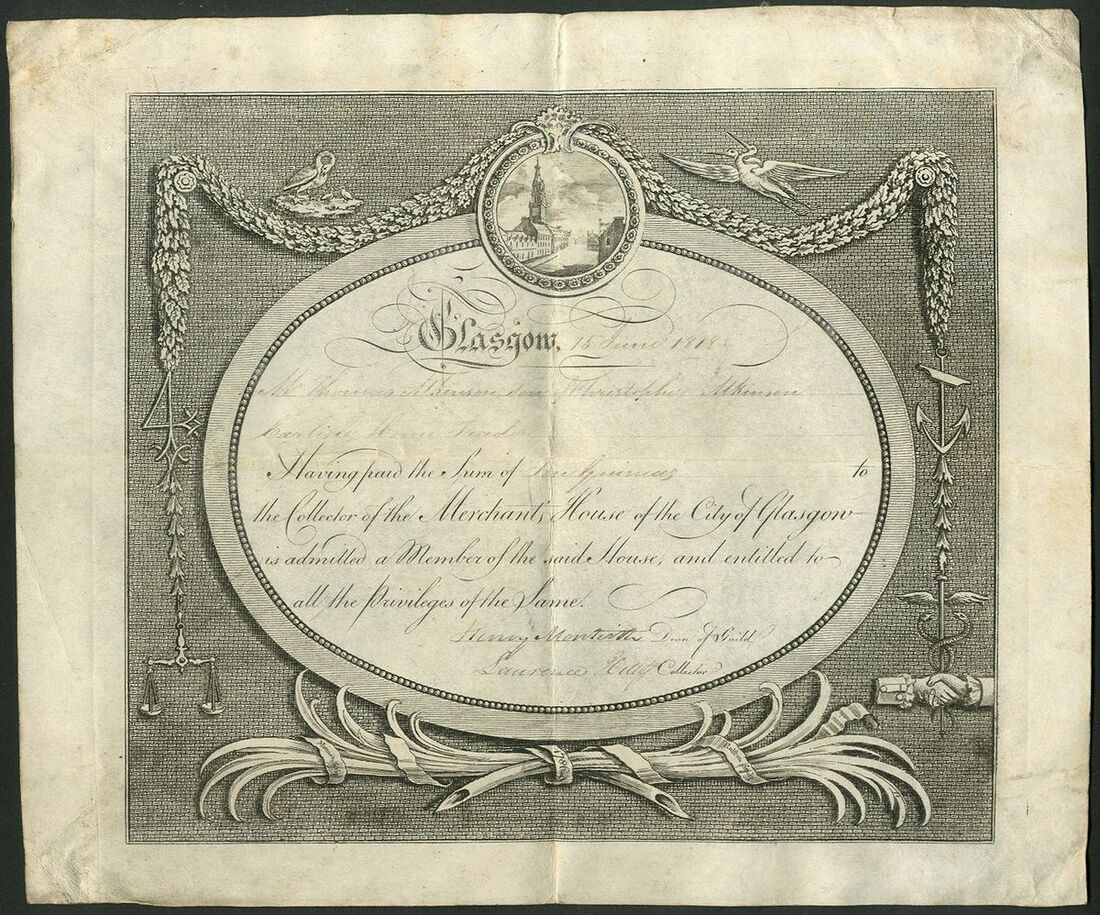 Glasgow, 15 June 1818
Mr. Thomas Atkinson, Son Christopher Atkinson
Carlisle
Having paid the Sum of Ten Guineas to
the Collector of the Merchants House of the City of Glasgow
is admitted a Member of the said House, and entitled to
all the Privileges of the Same.
Henry Monteith Dean of Guild
Laurence Hill Collector